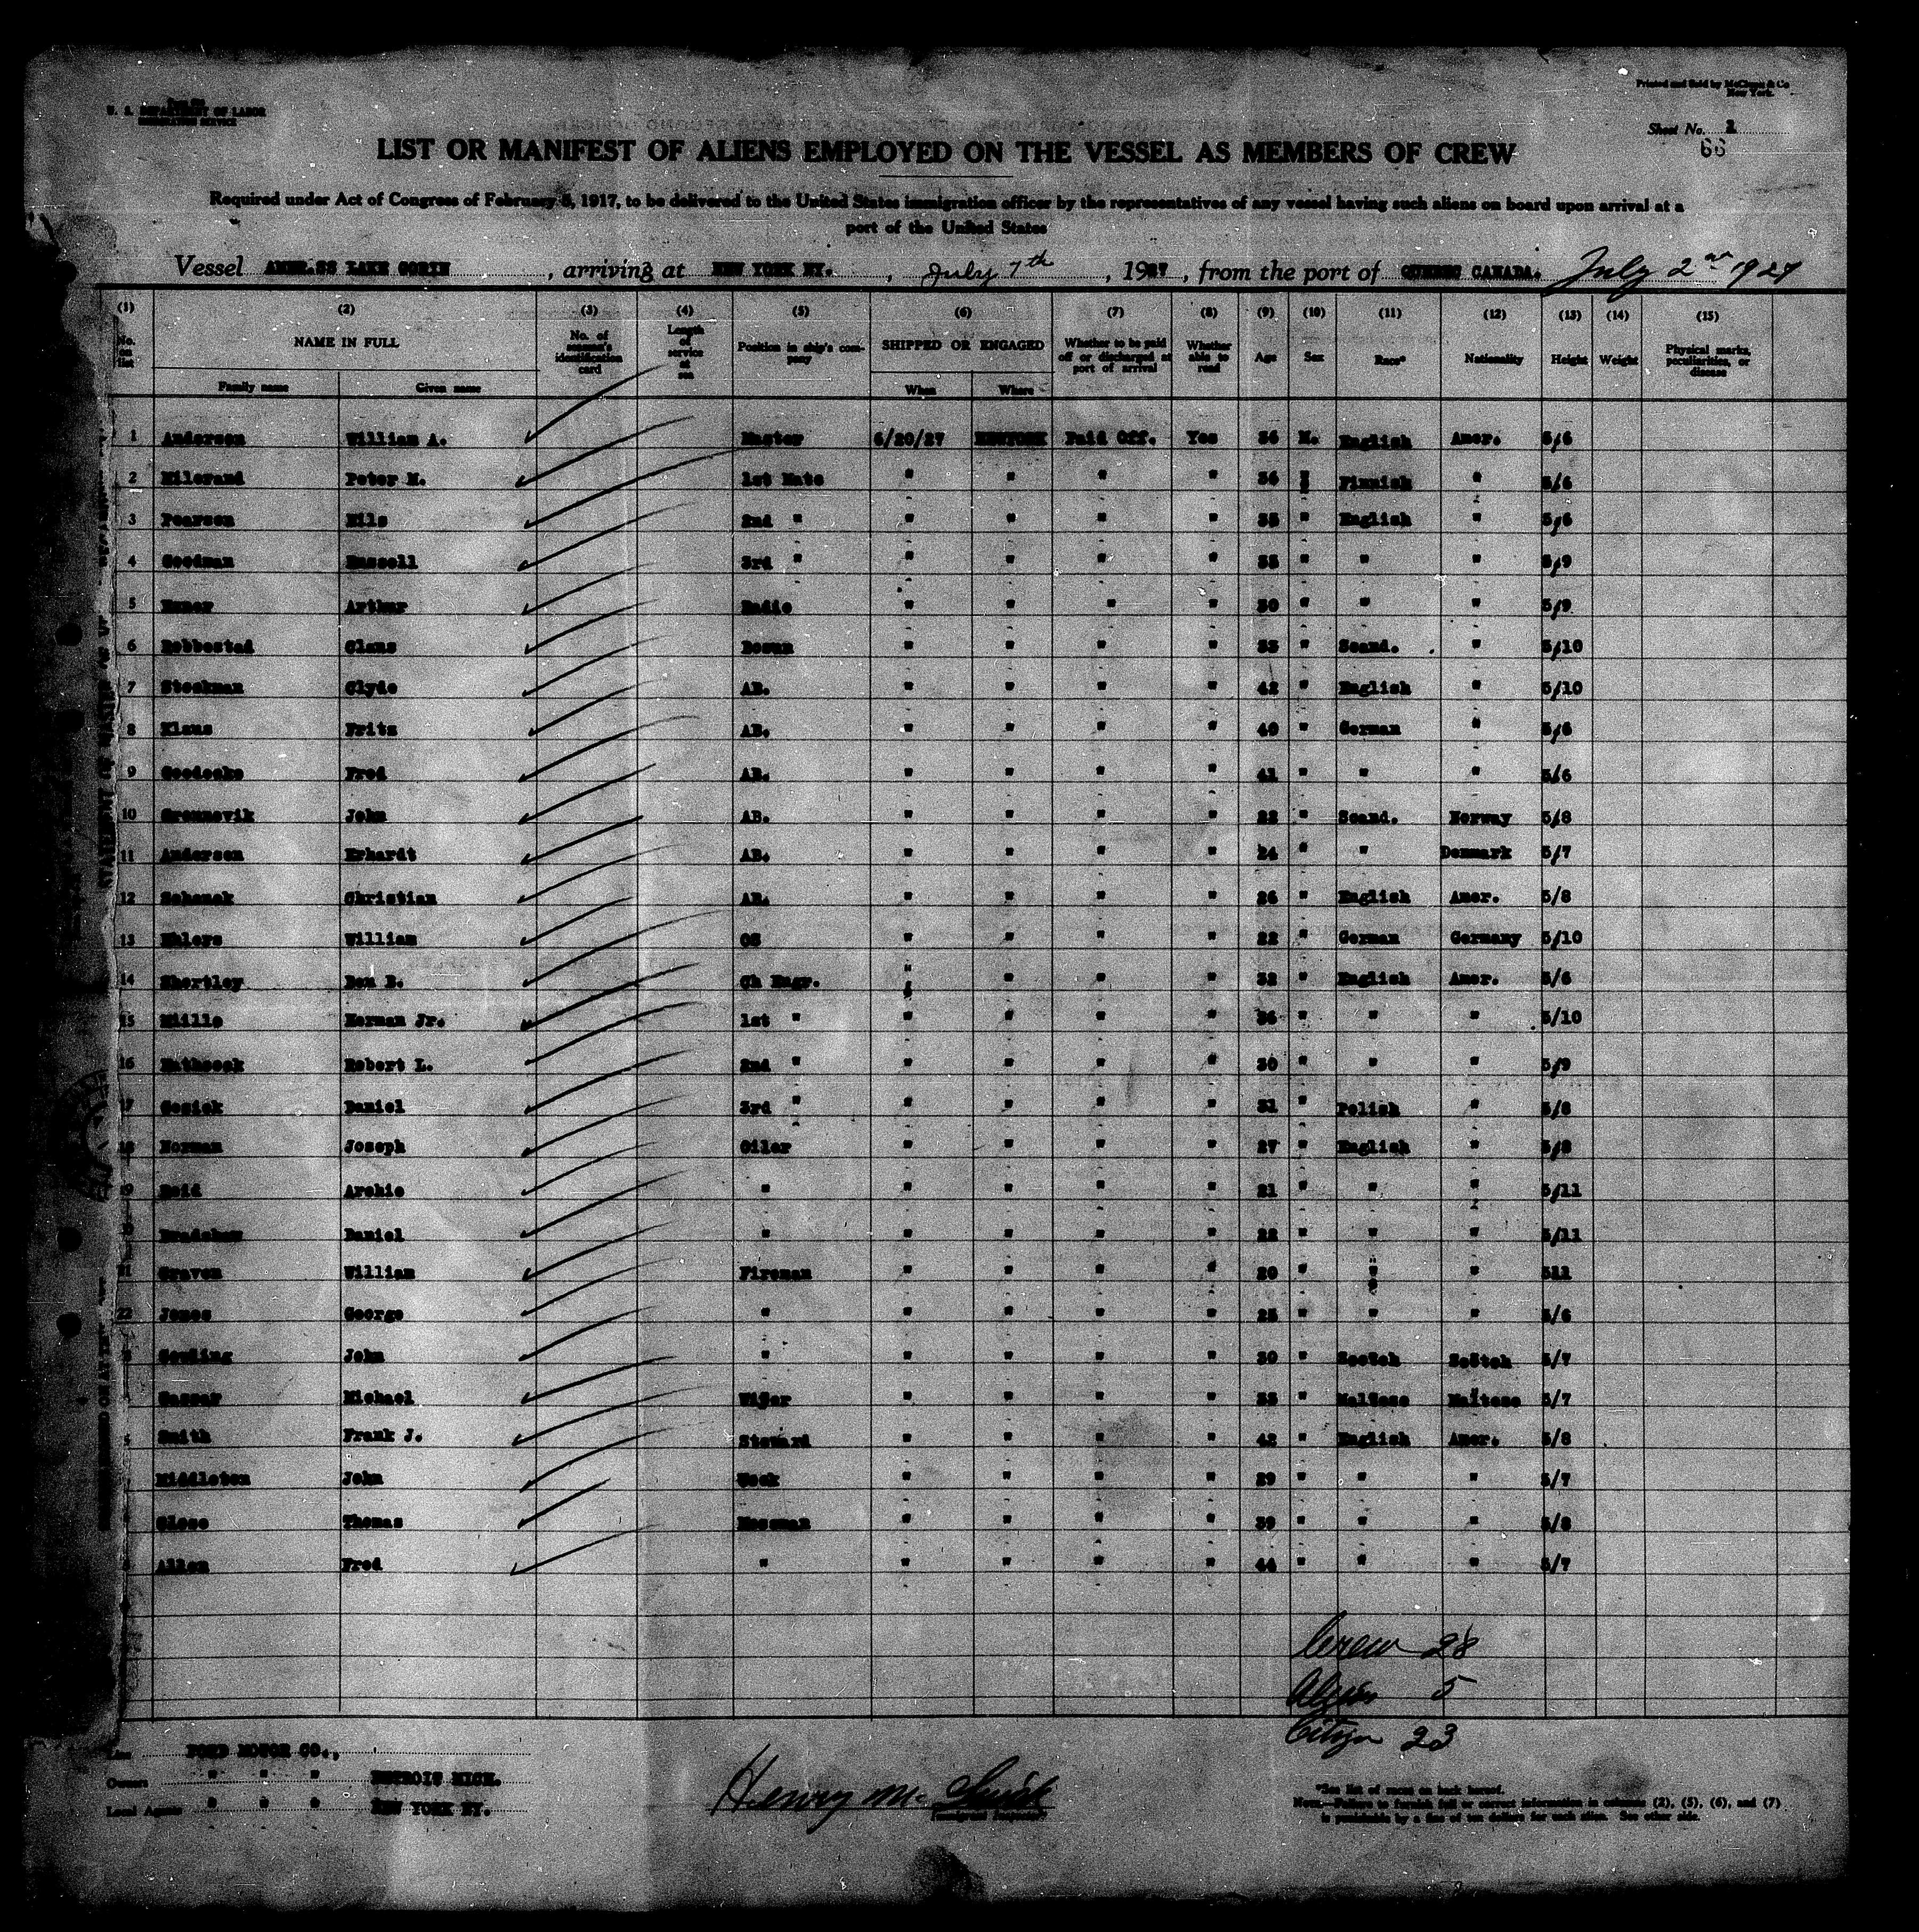 Printed and Sold by McClunn & Co
New York.
U. S. DEPARTMENT OF LABOR
IMMIGRATION SERVICE
Sheet No. 1
66
LIST OR MANIFEST OF ALIENS EMPLOYED ON THE VESSEL AS MEMBERS OF CREW
Required under Act of Congress of February 5, 1917, to be delivered to the United States immigration officer by the representatives of any vessel having such aliens on board upon arrival at a
port of the United States
Vessel AMER.SS LAKE GORIN, arriving at NEW YORK NY., July 7th, 1927, from the port of QUEBEC CANADA. July 2nd 1927
(1) (2) (3) (4) (5) (6) (7) (8) (9) (10) (11) (12) (13) (14) (15)
No. on list NAME IN FULL Family name Given name No. of seaman's identification card Length of service at sea Position in ship's company SHIPPED OR ENGAGED When Where Whether to be paid off or discharged at port of arrival Whether able to read Age Sex Race* Nationality Height Weight Physical marks, peculiarities, or disease
1 Andersen William A. Master 6/20/27 NEWYORK Paid Off. Yes 36 M. English Amer. 5/6
2 Peter M. 1st Mate " " " " 36 " Finnish " 5/6
3 Pearson Nils 2nd " " " " " 35 " English " 5/6
4 Goodman Russell 3rd " " " " " 35 " " " 5/9
5 Arthur Radio " " " " 30 " " " 5/9
6 Robbestad Claus Bosun " " " " 33 " Scand. " 5/10
7 Stockman Clyde AB. " " " " 42 " English " 5/10
8 Klaus Fritz AB. " " " " 40 " German " 5/6
9 Goedecke Fred AB. " " " " 41 " " " 5/6
10 Gronnevik John AB. " " " " 22 " Scand. Norway 5/8
11 Andersen Erhardt AB. " " " " 24 " " Denmark 5/7
12 Schenck Christian AB. " " " " 26 " English Amer. 5/8
13 Ehlers William OS " " " " 22 " German Germany 5/10
14 Shertley Ben B. Ch Engr. " " " " 32 " English Amer. 5/6
15 Mills Herman Jr. 1st " " " " " 36 " " " 5/10
16 Hathcock Robert L. 2nd " " " " " 30 " " " 5/9
17 Gesick Daniel 3rd " " " " " 31 " Polish " 5/8
18 Norman Joseph Oiler " " " " 27 " English " 5/8
19 Reid Archie " " " " " 21 " " " 5/11
Bradshaw Daniel " " " " " 22 " " " 5/11
21 Craven William Fireman " " " " 20 " " " 511
22 Jones George " " " " " 25 " " " 5/6
Gowling John " " " " " 30 " Scotch Scotch 5/7
Michael Wiper " " " " 35 " Maltese Maltese 5/7
Smith Frank J. Steward " " " " 42 " English Amer. 5/8
Middleton John Cook " " " " 29 " " " 5/7
Close Thomas Messman " " " " 39 " " " 5/8
Allen Fred " " " " " 44 " " " 5/7
Crew 28
Aliens 5
Citzn 23
Line FORD MOTOR CO.,
Owners " " " DETROIT MICH.
Local Agents " " " NEW YORK NY.
Henry Mc
Immigrant Inspector
*See list of races on back hereof.
Note.—Failure to furnish full or correct information in columns (2), (5), (6), and (7)
is punishable by a fine of ten dollars for each alien. See other side.